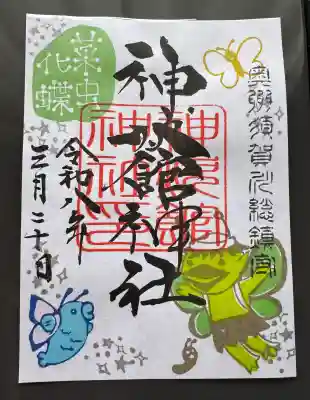 奥州須賀川総鎮守
神炊館神社
神炊館
神社印
令和八年
三月二十日
菜虫
化蝶